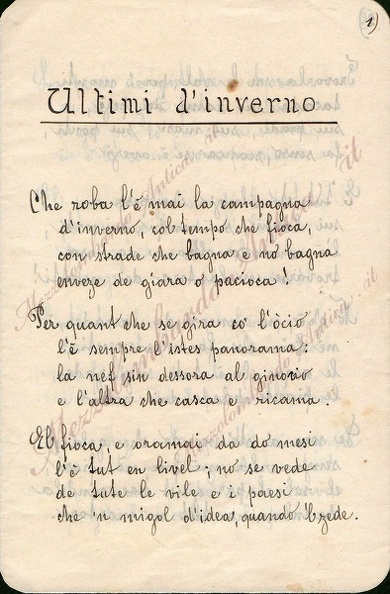 1)
Ultimi d'inverno
Che roba l'è mai la campagna
d'inverno, col tempo che fioca,
con strade che bagna e no bagna
enveze de giara o pacioca!
Per quant che se gira co' l'òcio
l'è sempre l'istes panorama:
la nef sin dessora al ginòcio
e l'altra che casca e ricama.
El fioca, e oramai da do mesi
l'è tut en livel; no se vede
de tute le vile e i paesi
che 'n migol d'idea, quando 'l